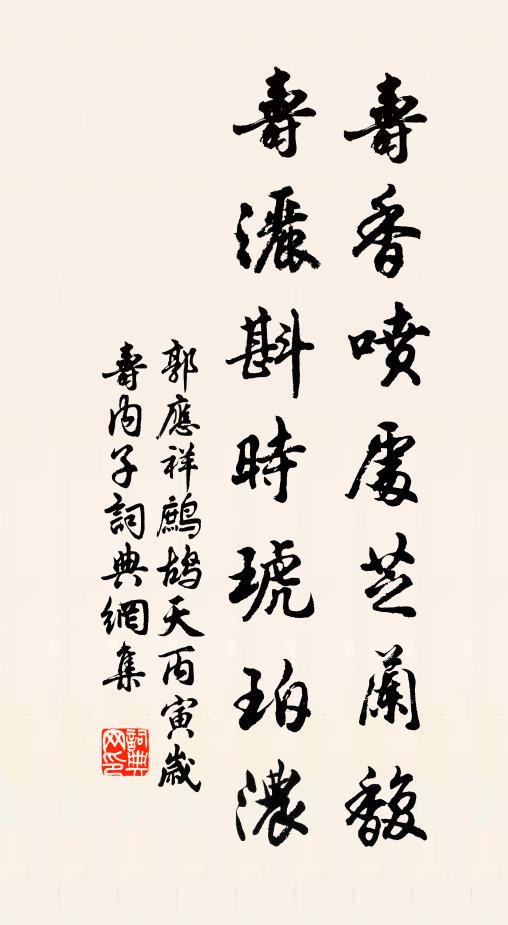 壽香噴處芝蘭馥
壽灑斟時琥珀濃
郭應祥鷓鴣天丙寅歲
壽内子詞典網集
詞典
网印